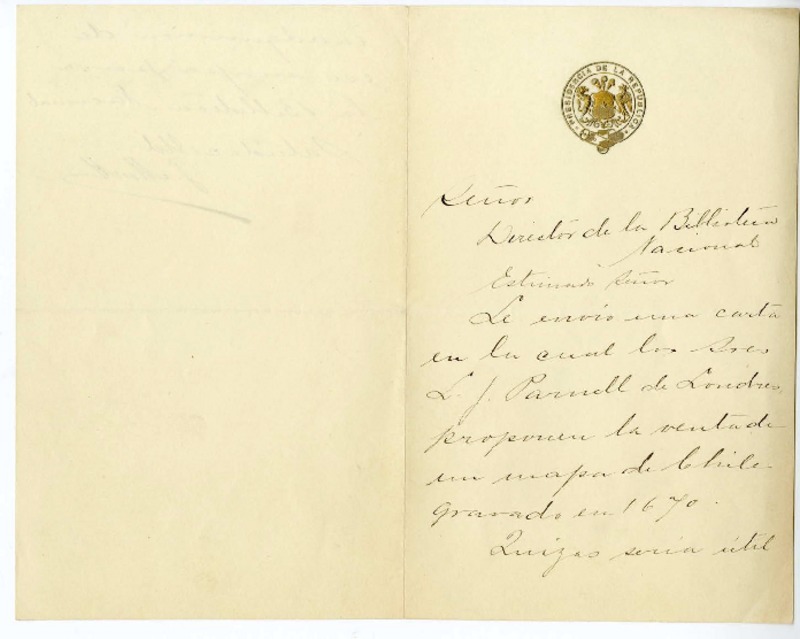 PRESIDENCIA DE LA REPUBLICA
Señor
Director de la Biblioteca
Nacional
Estimado Señor
Le envio una carta
en la cual los Sres
L. J. Parnell de Londres,
proponen la venta de
un mapa de Chile
gravado en 1670.
Quizas seria útil